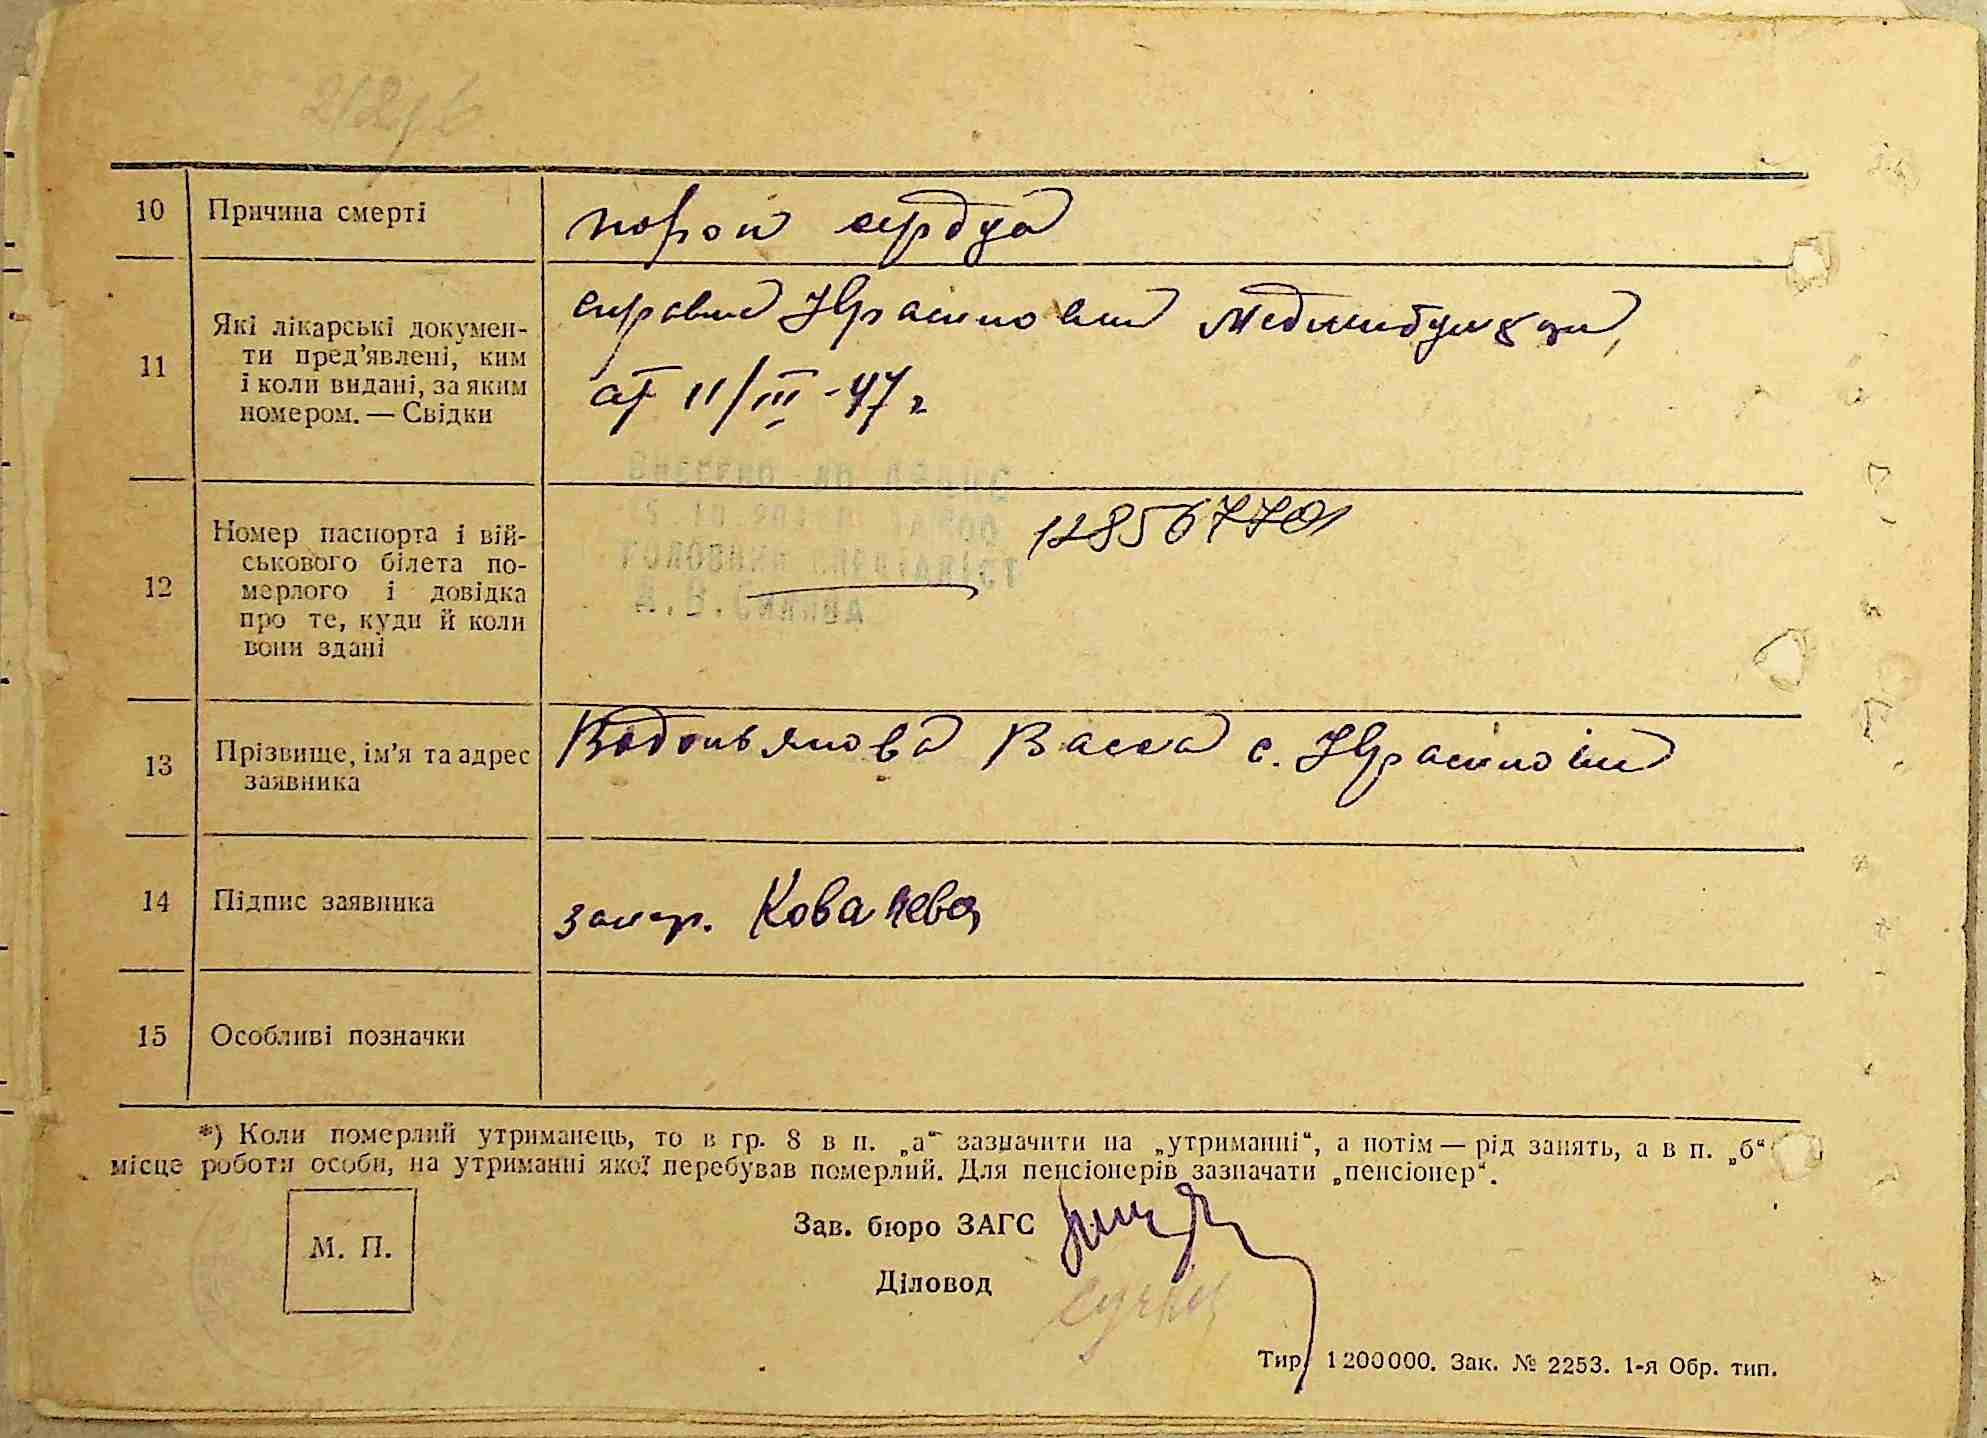 10 Причина смерті порок сердца
11 Які лікарські докумен-
ти пред'явлені, ким
і коли видані, за яким
номером. — Свідки
справка Медамбулатории
от 11/III-47 г
12 Номер паспорта і вій-
ськового білета по-
мерлого і довідка
про те, куди й коли
вони здані
13 Прізвище, ім'я та адрес
заявника
Водопьянова Васса с.
14 Підпис заявника Ковалева
15 Особливі позначки
*) Коли померлий утриманець, то в гр. 8 в п. „а“ зазначити на „утриманні“, а потім — рід занять, а в п. „б“
місце роботи особи, на утриманні якої перебував померлий. Для пенсіонерів зазначати „пенсіонер“.
М. П.
Зав. бюро ЗАГС
Діловод
Тир. 1200000. Зак. № 2253. 1-я Обр. тип.